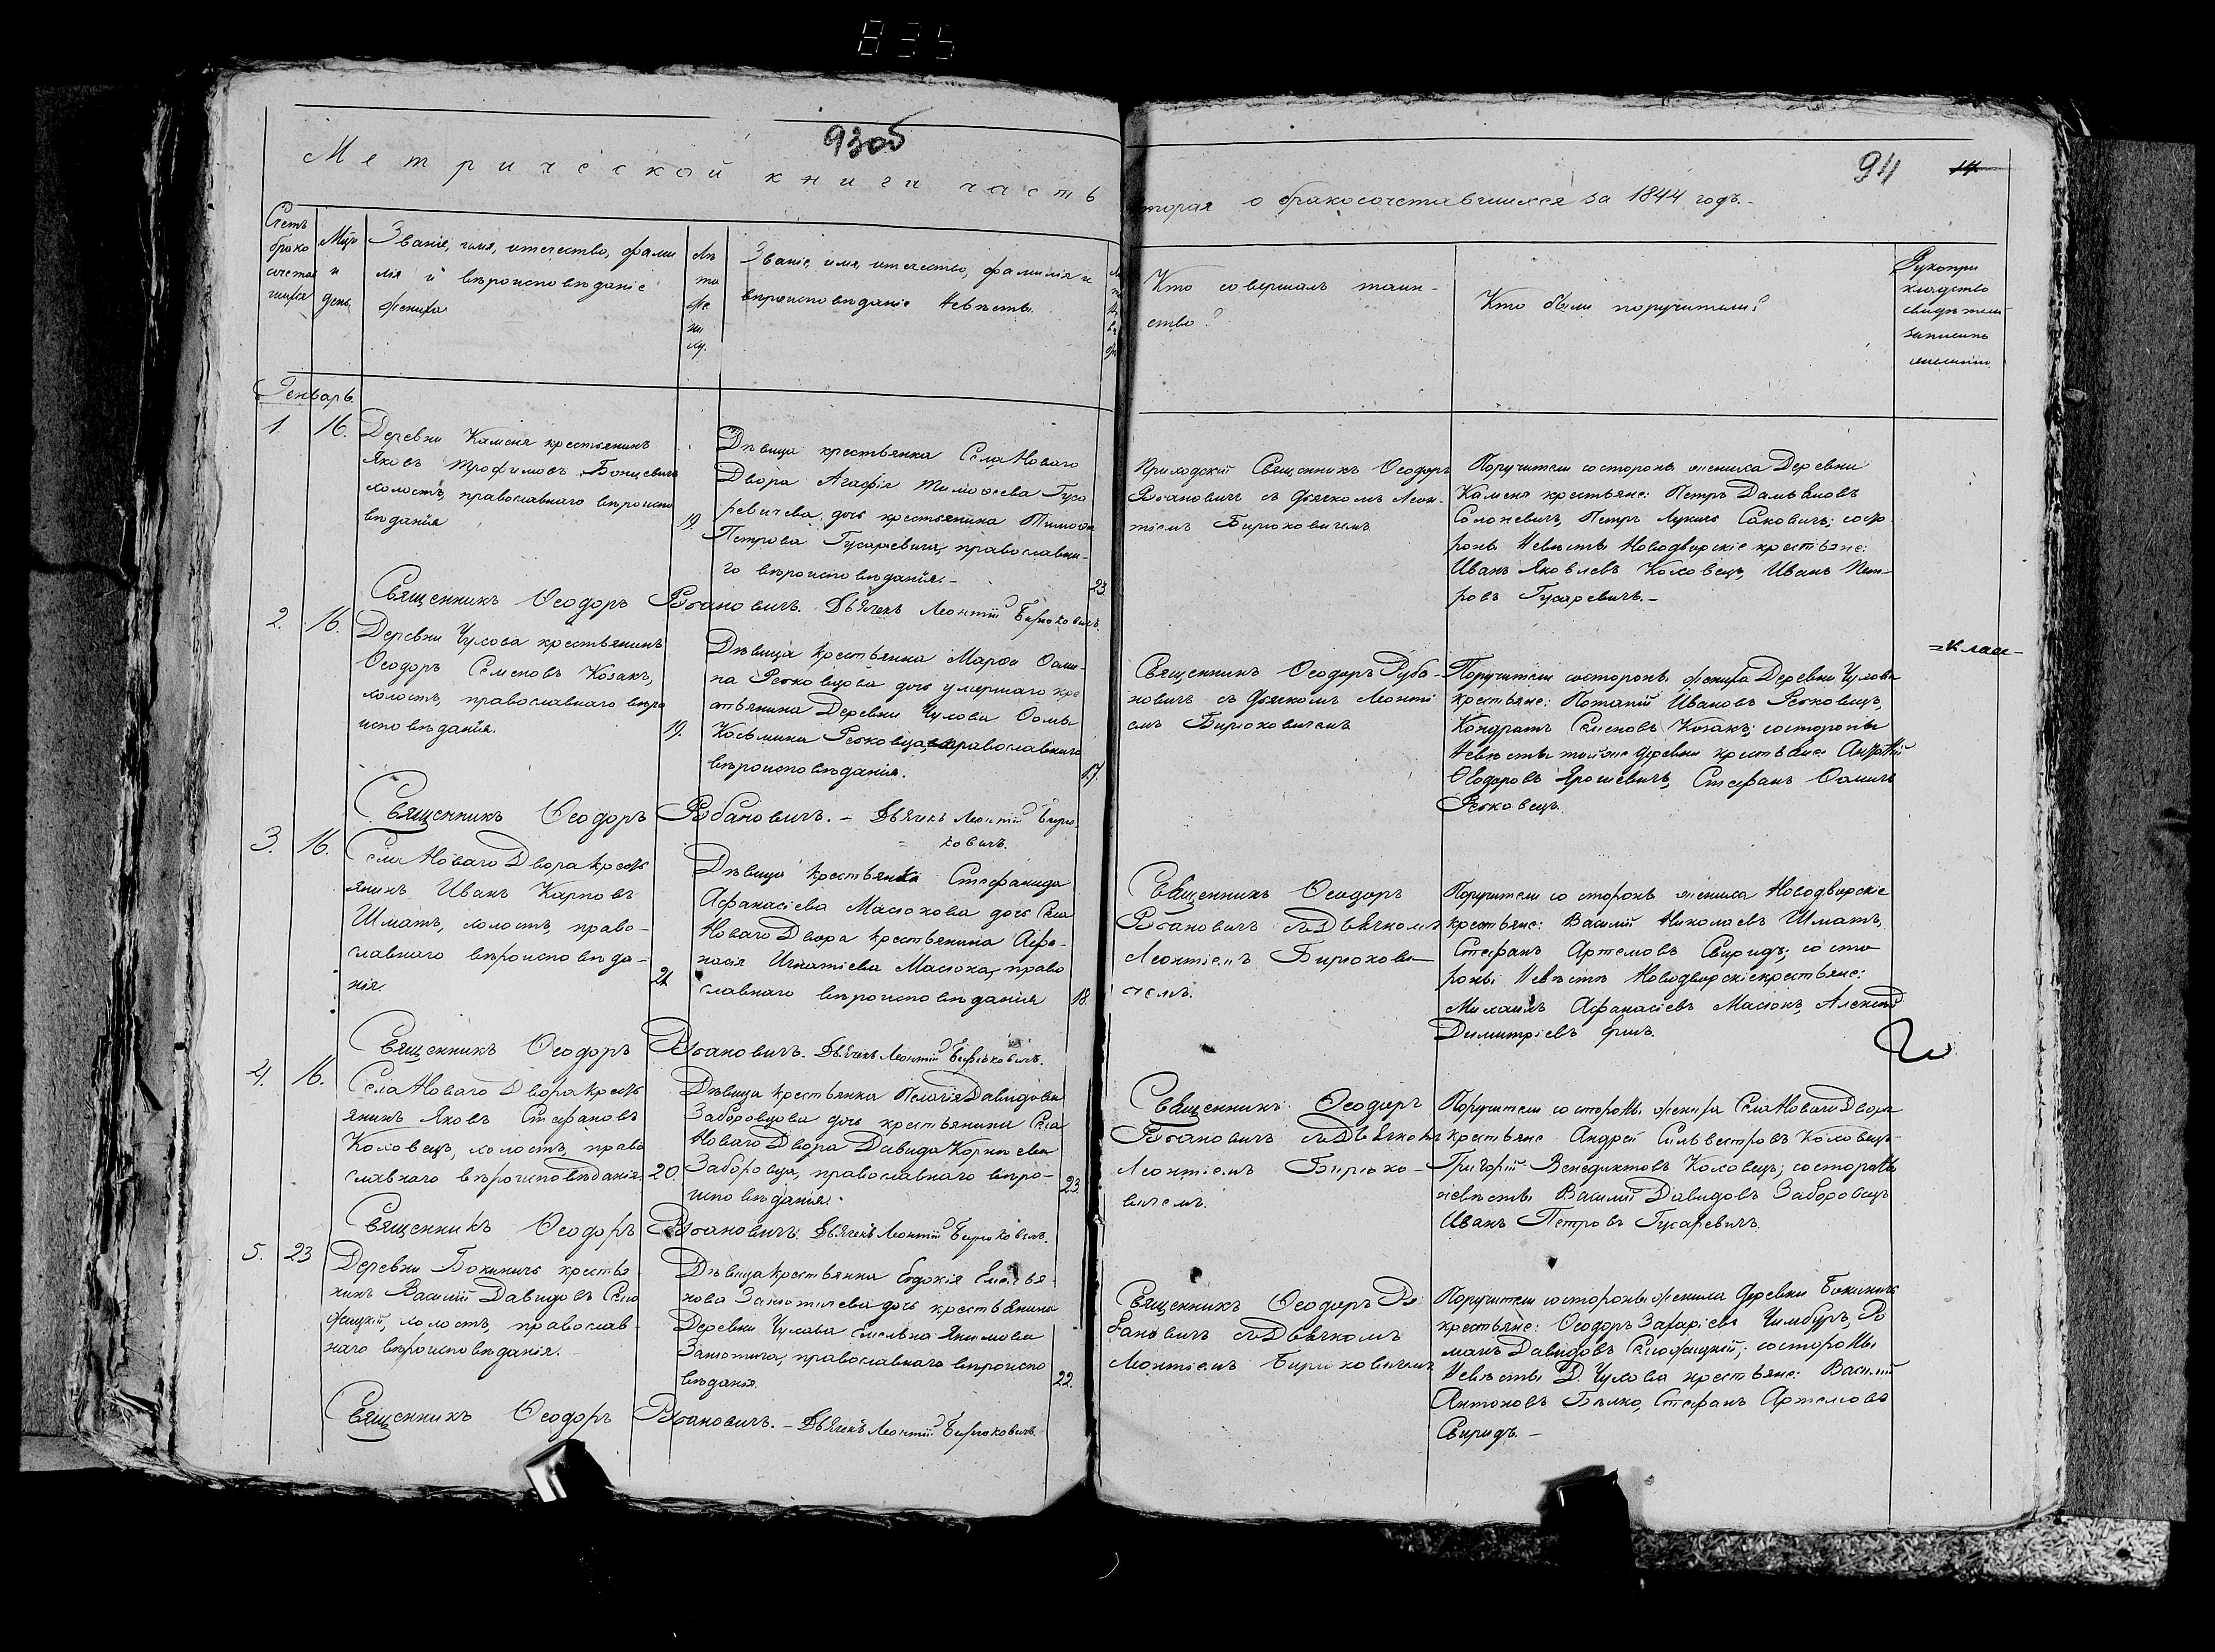 835
93об
Метрической книги часть
вторая о бракосочетавшихся за 1844 годъ.
94
14
Счетъ
брако
сочетав
шихся
Мцъ
и
день
Званіе, имя, отечество, фами
лія и вѣроисповѣданіе
жениха
Лѣ
та
же
ни
ха.
Званіе, имя, отечество, фамилія и
вѣроисповѣданіе невѣсты.
Кто совершалъ таин-
ство?
Кто были поручители?
Рукопри
кладство
свидѣтелей
записи
Генварь.
1.
16.
Деревни Каменя крестьянинъ
Яковъ Трофимовъ Бонцевичъ
холостъ, православнаго вѣроиспо
вѣданія
19.
Дѣвица крестьянка Села Новаго
Двора Агафія Тимоѳеева Гуса
ревичева дочь крестьянина Тимоѳея
Петрова Гусаревича, православна-
го вѣроисповѣданія.-
23.
Приходскій Священникъ Ѳеодоръ
Рубановичъ съ дьячкомъ Леон-
тіемъ Бирюковичемъ
Поручители со стороны жениха Деревни
Каменя крестьяне: Петръ Дамьяновъ
Солоневичъ, Петръ Лукичъ Саковичъ; со сто
роны невѣсты Новодворскіе крестьяне:
Иванъ Яковлевъ Коховецъ, Иванъ Пет-
ровъ Гусаревичъ.-
Священникъ Ѳеодоръ Рубановичъ. Дьячекъ Леонтій Бирюковичъ.
2.
16.
Деревни Чухова крестьянинъ
Ѳеодоръ Семеновъ Козакъ,
холостъ, православнаго вѣро
исповѣданія.
19.
Дѣвица крестьянка Марѳа Ѳоми-
на Рабковцова дочь умершаго кре
стьянина Деревни Чухова Ѳомы
Косьмина Рабковца, православнаго
вѣроисповѣданія.
17.
Священникъ Ѳеодоръ Руба-
новичъ съ дьячкомъ Леонті
емъ Бирюковичемъ
Поручители со стороны жениха Деревни Чухова
крестьяне: Потапій Ивановъ Рабковецъ,
Кондратъ Семеновъ Козакъ; со стороны
невѣсты той же деревни крестьяне
Ѳеодоровъ Ярошевичъ, Стефанъ Ѳомичъ
Рабковецъ.
Священникъ Ѳеодоръ Рубановичъ. - Дьячекъ Леонтій Бирю-
= ковичъ.
3.
16.
Села Новаго Двора кресть
янинъ Иванъ Карповъ
Шматъ, холостъ, право-
славнаго вѣроисповѣда-
нія.
21
Дѣвица крестьянка Стефанида
Афанасіева Масюкова дочь Села
Новаго Двора крестьянина Афа-
насія Игнатіева Масюка, право
славнаго вѣроисповѣданія
18.
Священникъ Ѳеодоръ
Рубановичъ съ Дьячкомъ
Леонтіемъ Бирюкови-
чемъ.
Поручители со стороны жениха Новодворскіе
крестьяне: Василій Николаевъ Шматъ,
Стефанъ Артемовъ Свиридъ; со сто
роны невѣсты Новодворскіе крестьяне:
Михаилъ Афанасіевъ Масюкъ, Алексѣй
Димитріевъ
Священникъ Ѳеодоръ Рубановичъ. Дьячекъ Леонтій Бирюковичъ.
4.
16.
Села Новаго Двора кресть
янинъ Яковъ Стефановъ
Коховецъ, холостъ, право
славнаго вѣроисповѣданія.
20.
Дѣвица крестьянка Пелагія Давидова
Заборовцова дочь крестьянина Села
Новаго Двора Давида Корнѣева
Заборовца, православнаго вѣро-
исповѣданія.
23.
Священникъ Ѳеодоръ
Рубановичъ съ Дьячкомъ
Леонтіемъ Бирюко-
вичемъ.
Поручители со стороны жениха Села Новаго Двора
крестьяне Андрей Сильвестровъ Коховецъ
Григорій Венедиктовъ Коховецъ; со стороны
невѣсты Василій Давидовъ Заборовецъ
Иванъ Петровъ Гусаревичъ.
Священникъ Ѳеодоръ Рубановичъ. Дьячекъ Леонтій Бирюковичъ.
5.
23
Деревни Бокиничъ крестья-
нинъ Василій Давидовъ
холостъ, православ-
наго вѣроисповѣданія.
Дѣвица крестьянка Евдокія Емелья-
нова дочь крестьянина
Деревни Чухова Емельяна Якимова
православнаго вѣроиспо
вѣданія.
22.
Священникъ Ѳеодоръ Ру
бановичъ съ Дьячкомъ
Леонтіемъ Бирюковичемъ
Поручители со стороны жениха деревни Бокиничъ
крестьяне: Ѳеодоръ Захаріевъ Чимбуръ, Ро
манъ Давидовъ со стороны
невѣсты Д. Чухова крестьяне: Василій
Антоновъ Бѣлко, Стефанъ Артемовъ
Свиридъ.-
Священникъ Ѳеодоръ Рубановичъ. - Дьячекъ Леонтій Бирюковичъ.